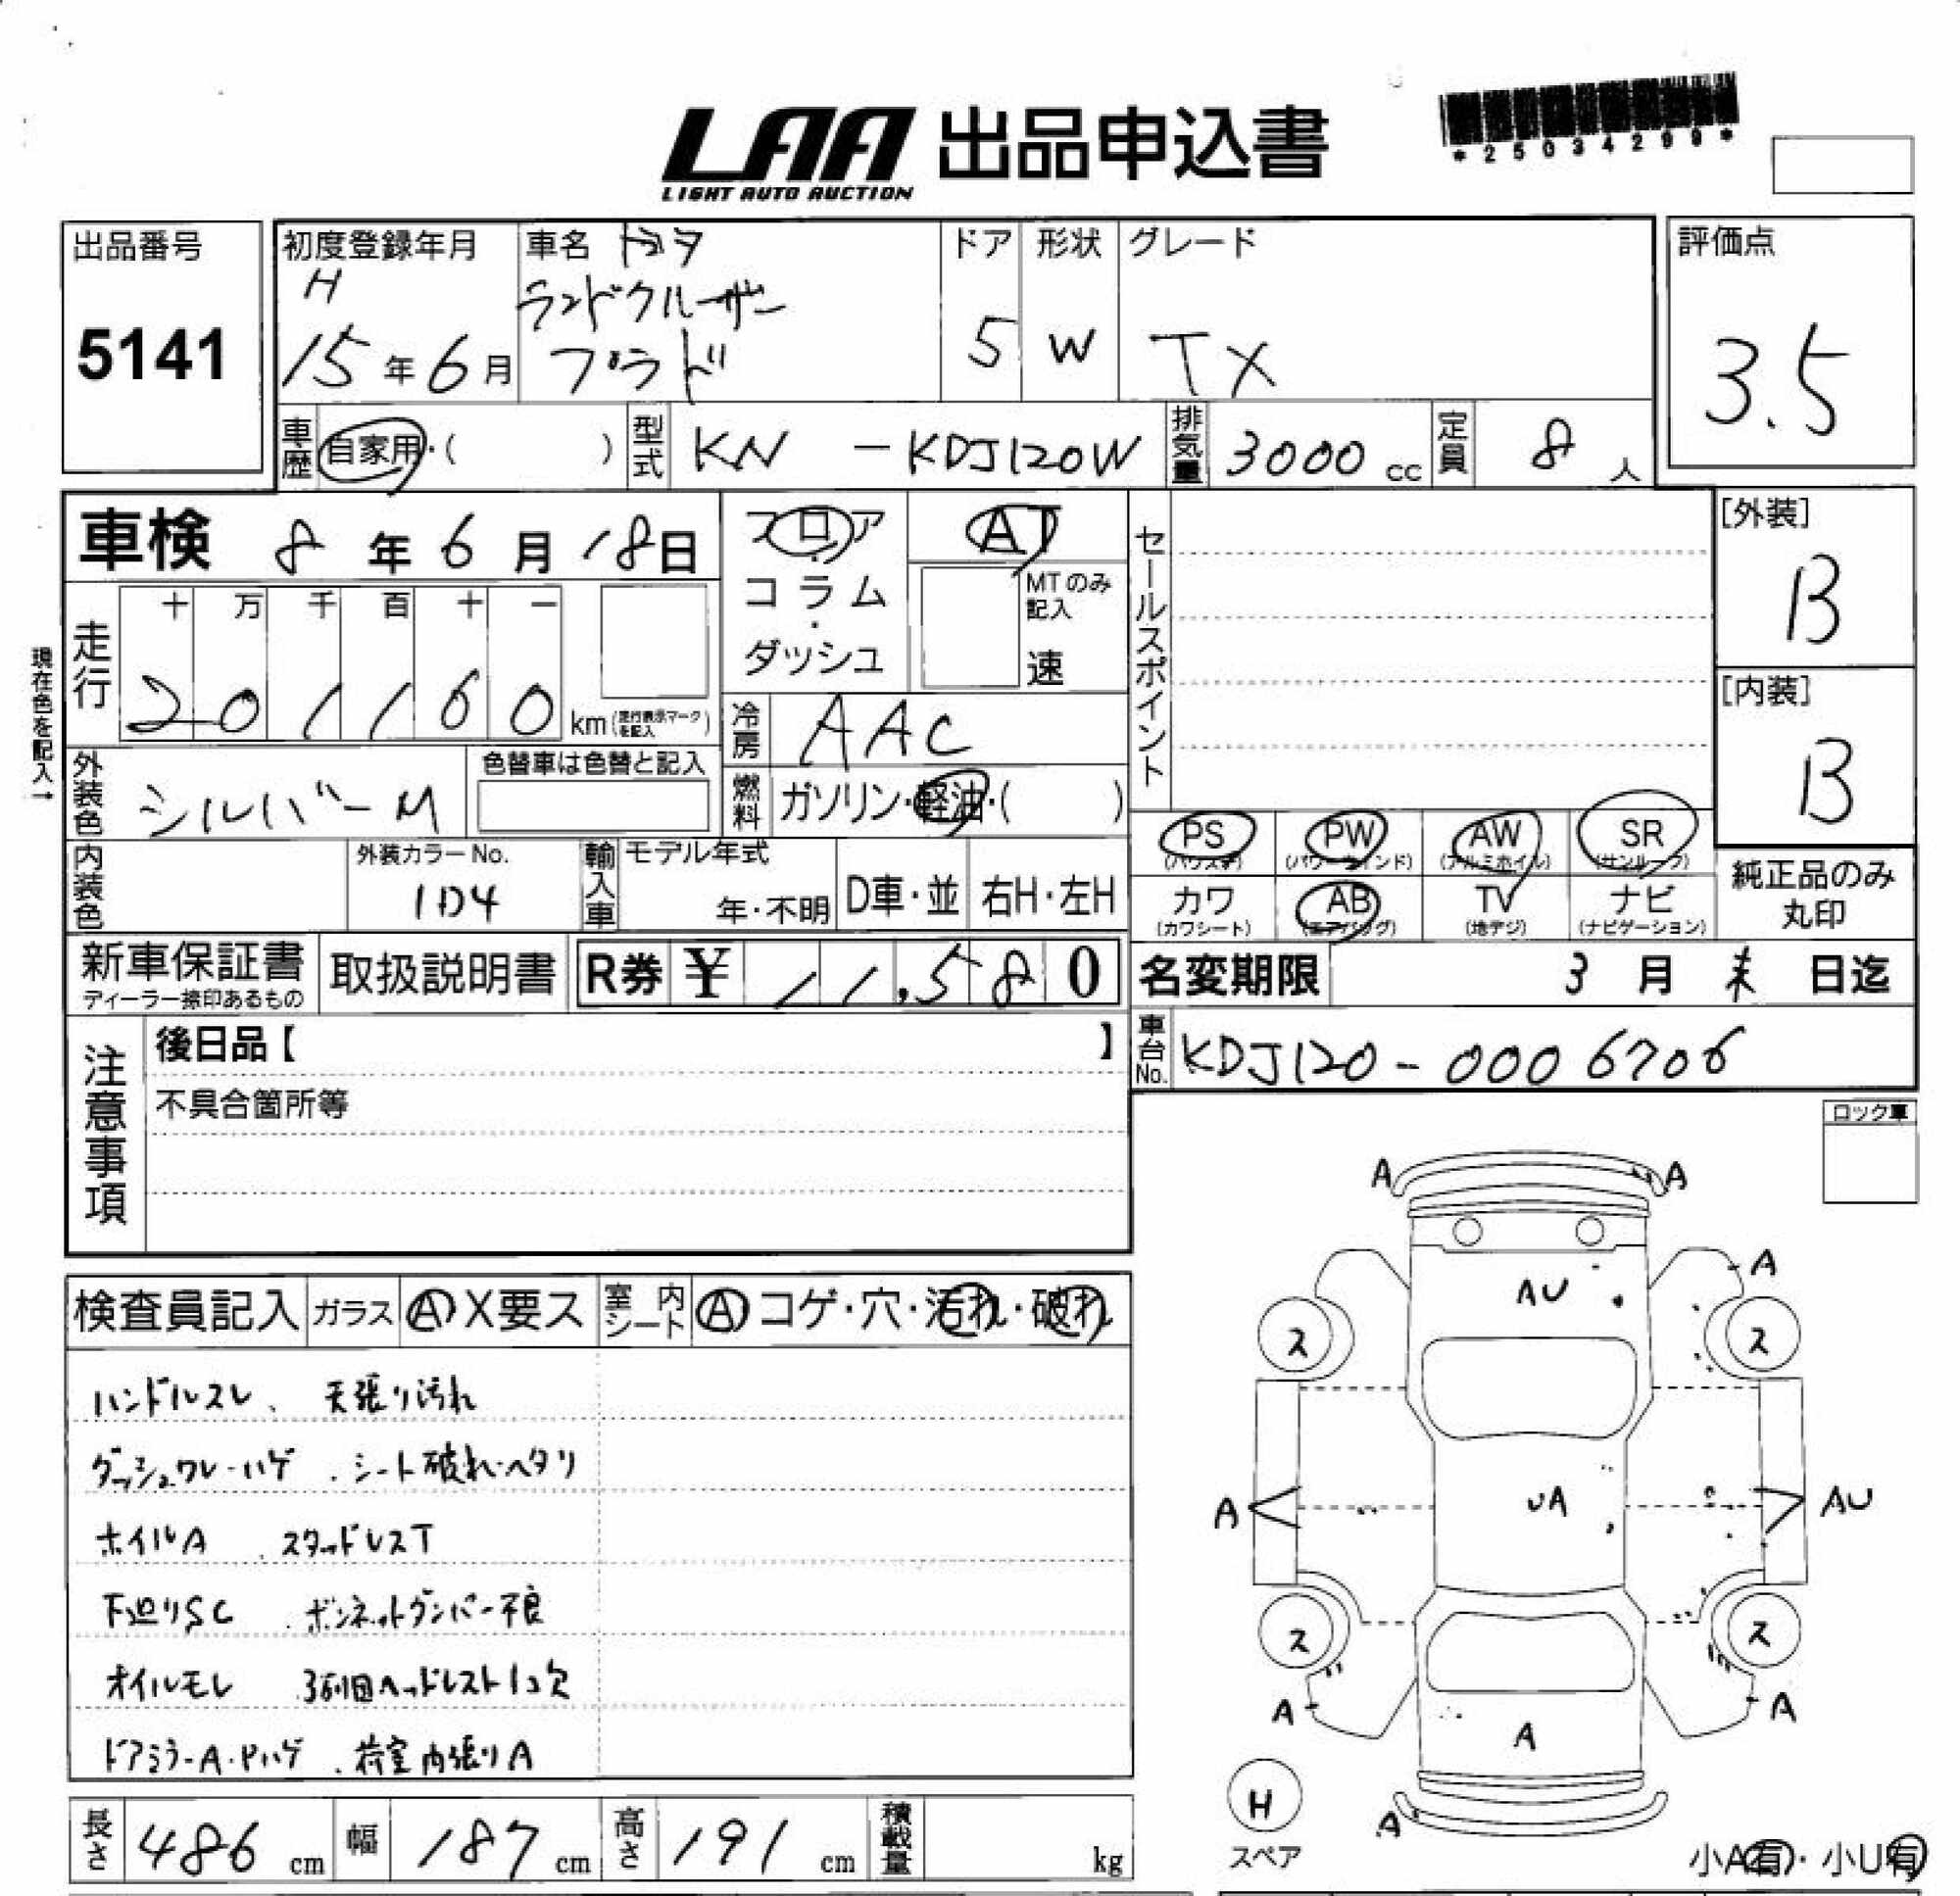 LAA 出品申込書
LIGHT AUTO AUCTION
*25034299*
出品番号
5141
初度登録年月
H
15年6月
車名 トヨタ
ランドクルーザー
プラド
ドア
5
形状
W
グレード
TX
評価点
3.5
車歴
自家用・( )
型式
KN -KDJ120W
排気量
3000 cc
定員
8 人
車検 8年6月18日
フロア
・
コラム
・
ダッシュ
AT
MTのみ
記入
速
セールスポイント
[外装]
B
[内装]
B
現在色を記入→
走行
十 万 千 百 十 一
201160 km(走行表示マークを記入)
冷房
AAC
外装色
シルバーM
色替車は色替と記入
燃料
ガソリン・軽油・( )
PS
(パワステ)
PW
(パワーウインド)
AW
(アルミホイル)
SR
(サンルーフ)
カワ
(カワシート)
AB
(エアバッグ)
TV
(地デジ)
ナビ
(ナビゲーション)
純正品のみ
丸印
内装色
外装カラーNo.
1D4
輸入車
モデル年式
年・不明
D車・並
右H・左H
新車保証書
ディーラー捺印あるもの
取扱説明書
R券 ¥ 11,580
名変期限 3月末日迄
車台No.
KDJ120-0006706
注意事項
後日品【 】
不具合箇所等
ロック車
検査員記入
ガラス
A X要ス
室内シート
A コゲ・穴・汚れ・破れ
ハンドルスレ、 天張り汚れ
ダッシュワレ・ハゲ 、シート破れ・ヘタリ
ホイルA 、スタッドレスT
下廻りSC 、ボンネットダンパー不良
オイルモレ 、3列目ヘッドレスト1コ欠
ドアミラーA・Pハゲ 、荷室内張りA
A
A
A
AU
ス
ス
A
UA
AU
ス
ス
A
A
A
A
H
スペア
小A有・小U有
長さ
486 cm
幅
187 cm
高さ
191 cm
積載量
kg